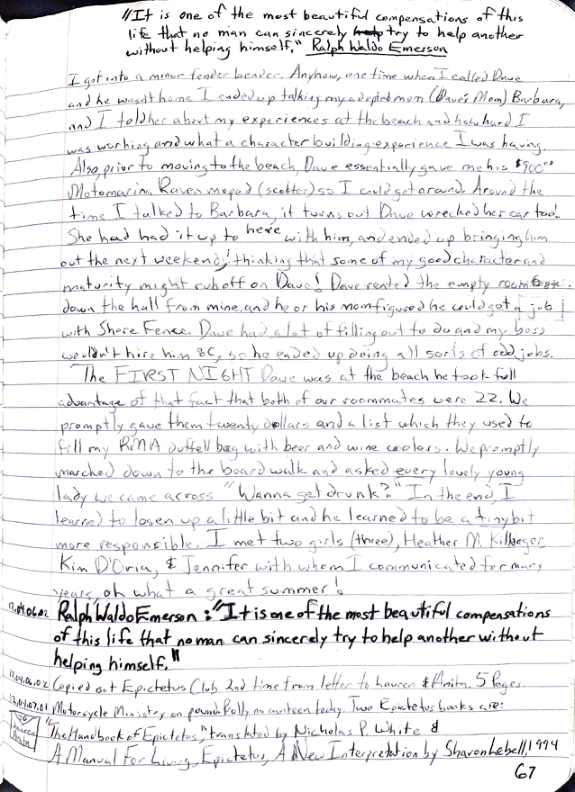 "It is one of the most beautiful compensations of this
life that no man can sincerely help try to help another
without helping himself." Ralph Waldo Emerson
I got into a minor fender bender. Anyhow, one time when I called Dave
and he wasn't home I ended up talking my adopted mom (Dave's Mom) Barbara,
and I told her about my experiences at the beach and how hard I
was working and what a character building experience I was having.
Also, prior to moving to the beach, Dave essentially gave me his $900.00
Motomarina Raven moped (scooter) so I could get around. Around the
time I talked to Barbara, it turns out Dave wrecked her car too!
She had had it up to here with him, and ended up bringing him
out the next weekend; thinking that some of my good character and
maturity might rub off on Dave! Dave rented the empty room
down the hall from mine, and he or his mom figured he could got a job
with Shore Fence. Dave had a lot of filling out to do and my boss
wouldn't hire him so he ended up doing all sorts of odd jobs.
The FIRST NIGHT Dave was at the beach he took full
advantage of that fact that both of our roommates were 22. We
promptly gave them twenty dollars and a list which they used to
fill my RMA duffell bag with beer and wine coolers. We promptly
marched down to the board walk and asked every lovely young
lady we came across "Wanna get drunk?" In the end, I
learned to losen up a little bit and he learned to be a tiny bit
more responsible. I met two girls (three), Heather M.
Kim D'Oria, & Jennifer with whom I communicated for many
years, oh what a great summer!
12.04.06.02 Ralph Waldo Emerson: "It is one of the most beautiful compensations
of this life that no man can sincerely try to help another without
helping himself."
12.04.06.02 Copied out Epictetus Club 2nd time from letter to Lauren & Anita. 5 Pages.
12.04.07.01 Motorcycle Ministry on pound. Two Epictetus books are:
"The Handbook of Epictetus," translated by Nicholas P. White &
A Manual For Living, Epictetus, A New Interpretation by Sharon Lebell, 1994
67